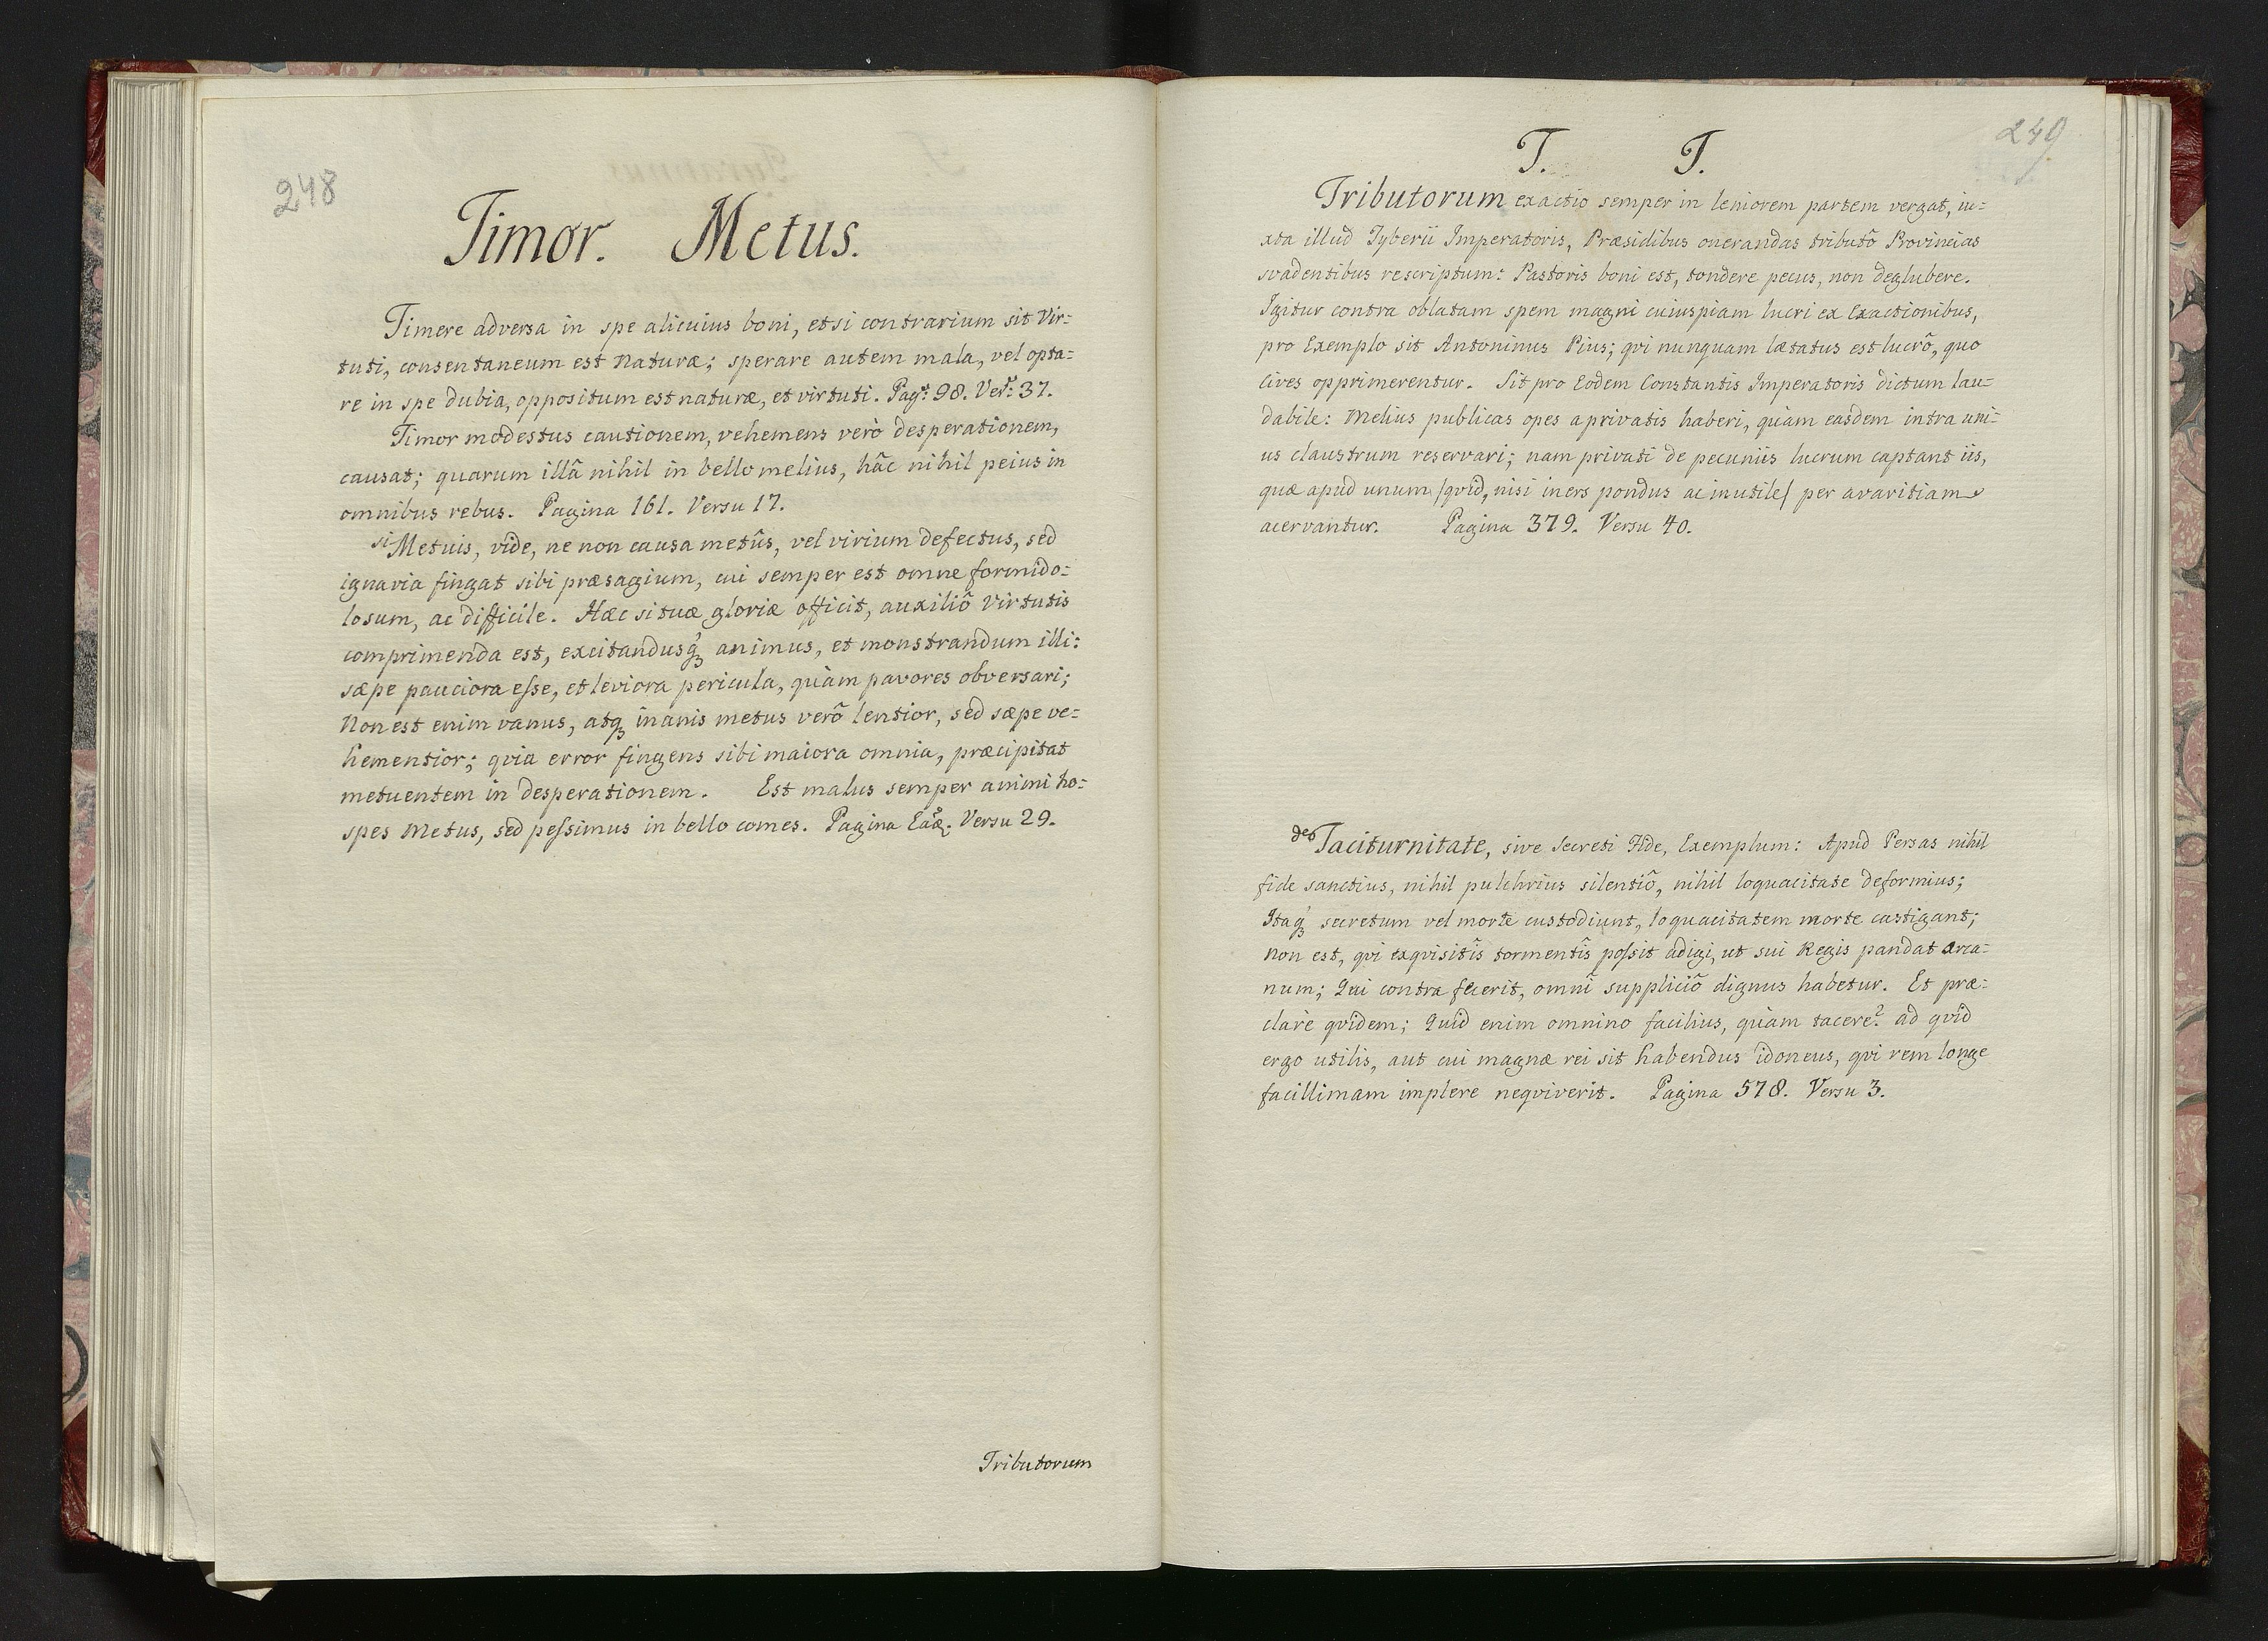 248
Timor. Metus.
Timere adversa in spe alicuius boni, etsi contrarium sit Vir=
tuti, consentaneum est Naturæ; sperare autem mala, vel opta=
re in spe dubia, oppositum est naturæ, et virtuti. Pag: 98. Ver: 37.
Timor modestus cautionem, vehemens verò desperationem,
causat; quarum illâ nihil in bello melius, hâc nihil peius in
omnibus rebus. Pagina 161. Versu 17.
si Metuis, vide, ne non causa metûs, vel virium defectus, sed
ignavia fingat sibi præsagium, cui semper est omne formido=
losum, ac difficile. Hæc si tuæ gloriæ officit, auxiliô Virtutis
comprimenda est, excitandusqꝫ animus, et monstrandum illi:
sæpe pauciora eſse, et leviora pericula, quàm pavores obversari;
Non est enim vanus, atqꝫ inanis metus verô lentior, sed sæpe ve=
hementior; qvia error fingens sibi maiora omnia, præcipitat
metuentem in desperationem. Est malus semper animi ho=
spes Metus, sed peſsimus in bello comes. Pagina Eâd. Versu 29.
Tributorum
249
T. T.
Tributorum exactio semper in leniorem partem vergat, iu=
xta illud Tyberii Imperatoris, Præsidibus onerandas tributô Provincias
svadentibus rescriptum: Pastoris boni est, tondere pecus, non deglubere.
Igitur contra oblatam spem magni cuiuspiam lucri ex Exactionibus,
pro Exemplo sit Antoninus Pius; qvi nunquam lætatus est lucrô, quo
Cives opprimerentur. Sit pro Eodem Constantis Imperatoris dictum lau=
dabile: Melius publicas opes a privatis haberi, quàm easdem intra uni=
us claustrum reservari; nam privati de pecuniis lucrum captant iis,
quæ apud unum /qvid, nisi iners pondus ac inutile/ per avaritiam
acervantur. Pagina 379. Versu 40.
de Taciturnitate, sive Secreti Fide, Exemplum: Apud Persas nihil
fide sanctius, nihil pulchrius silentiô, nihil loquacitate deformius;
Itaqꝫ secretum vel morte custodiunt, loquacitatem morte castigant;
non est, qvi exqvisitîs tormentîs poſsit adigi, ut sui Regis pandat arca=
num; Qui contra fecerit, omnî suppliciô dignus habetur. Et præ=
clarè qvidem; Quid enim omnino facilius, quàm tacere? ad qvid
ergo utilis, aut cui magnæ rei sit habendus idoneus, qvi rem longe
facillimam implere neqviverit. Pagina 578. Versu 3.